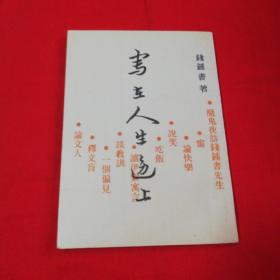 錢鍾書 著
寫在人生邊上
•魔鬼夜訪錢鍾書先生
•窗
•論快樂
•說笑
•吃飯
•讀伊索寓言
•談教訓
•一個偏見
•釋文盲
•論文人